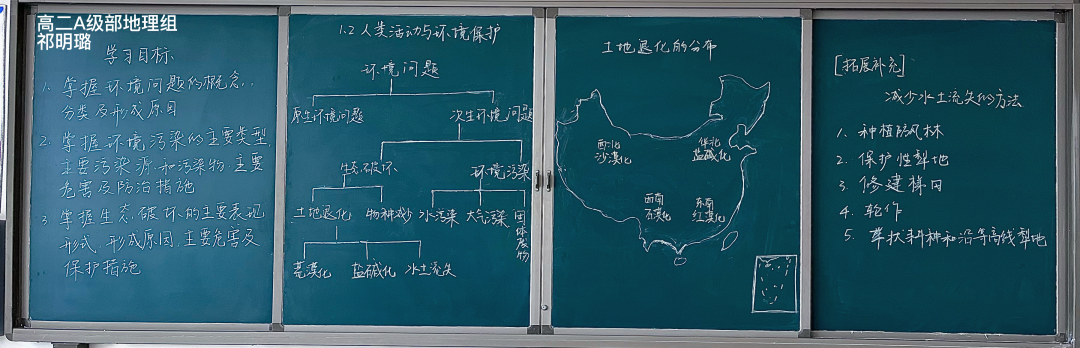 高二A级部地理组
祁明璐
学习目标
1. 掌握环境问题的概念、
分类及形成原因
2. 掌握环境污染的主要类型,
主要污染源和污染物,主要
危害及防治措施
3. 掌握生态破坏的主要表现
形式、形成原因,主要危害及
保护措施
1.2 人类活动与环境保护
环境问题
原生环境问题 次生环境问题
生态破坏 环境污染
土地退化 物种减少 水污染 大气污染 固体废物
荒漠化 盐碱化 水土流失
土地退化的分布
西北
沙漠化
华北
盐碱化
西南
石漠化
东南
红漠化
[拓展补充]
减少水土流失的方法
1. 种植防风林
2. 保护性犁地
3. 修建梯田
4. 轮作
5. 草状料种和沿等高线犁地